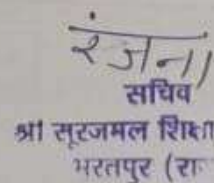 रंजना
सचिव
श्री सूरजमल शिक्षा
भरतपुर (रा